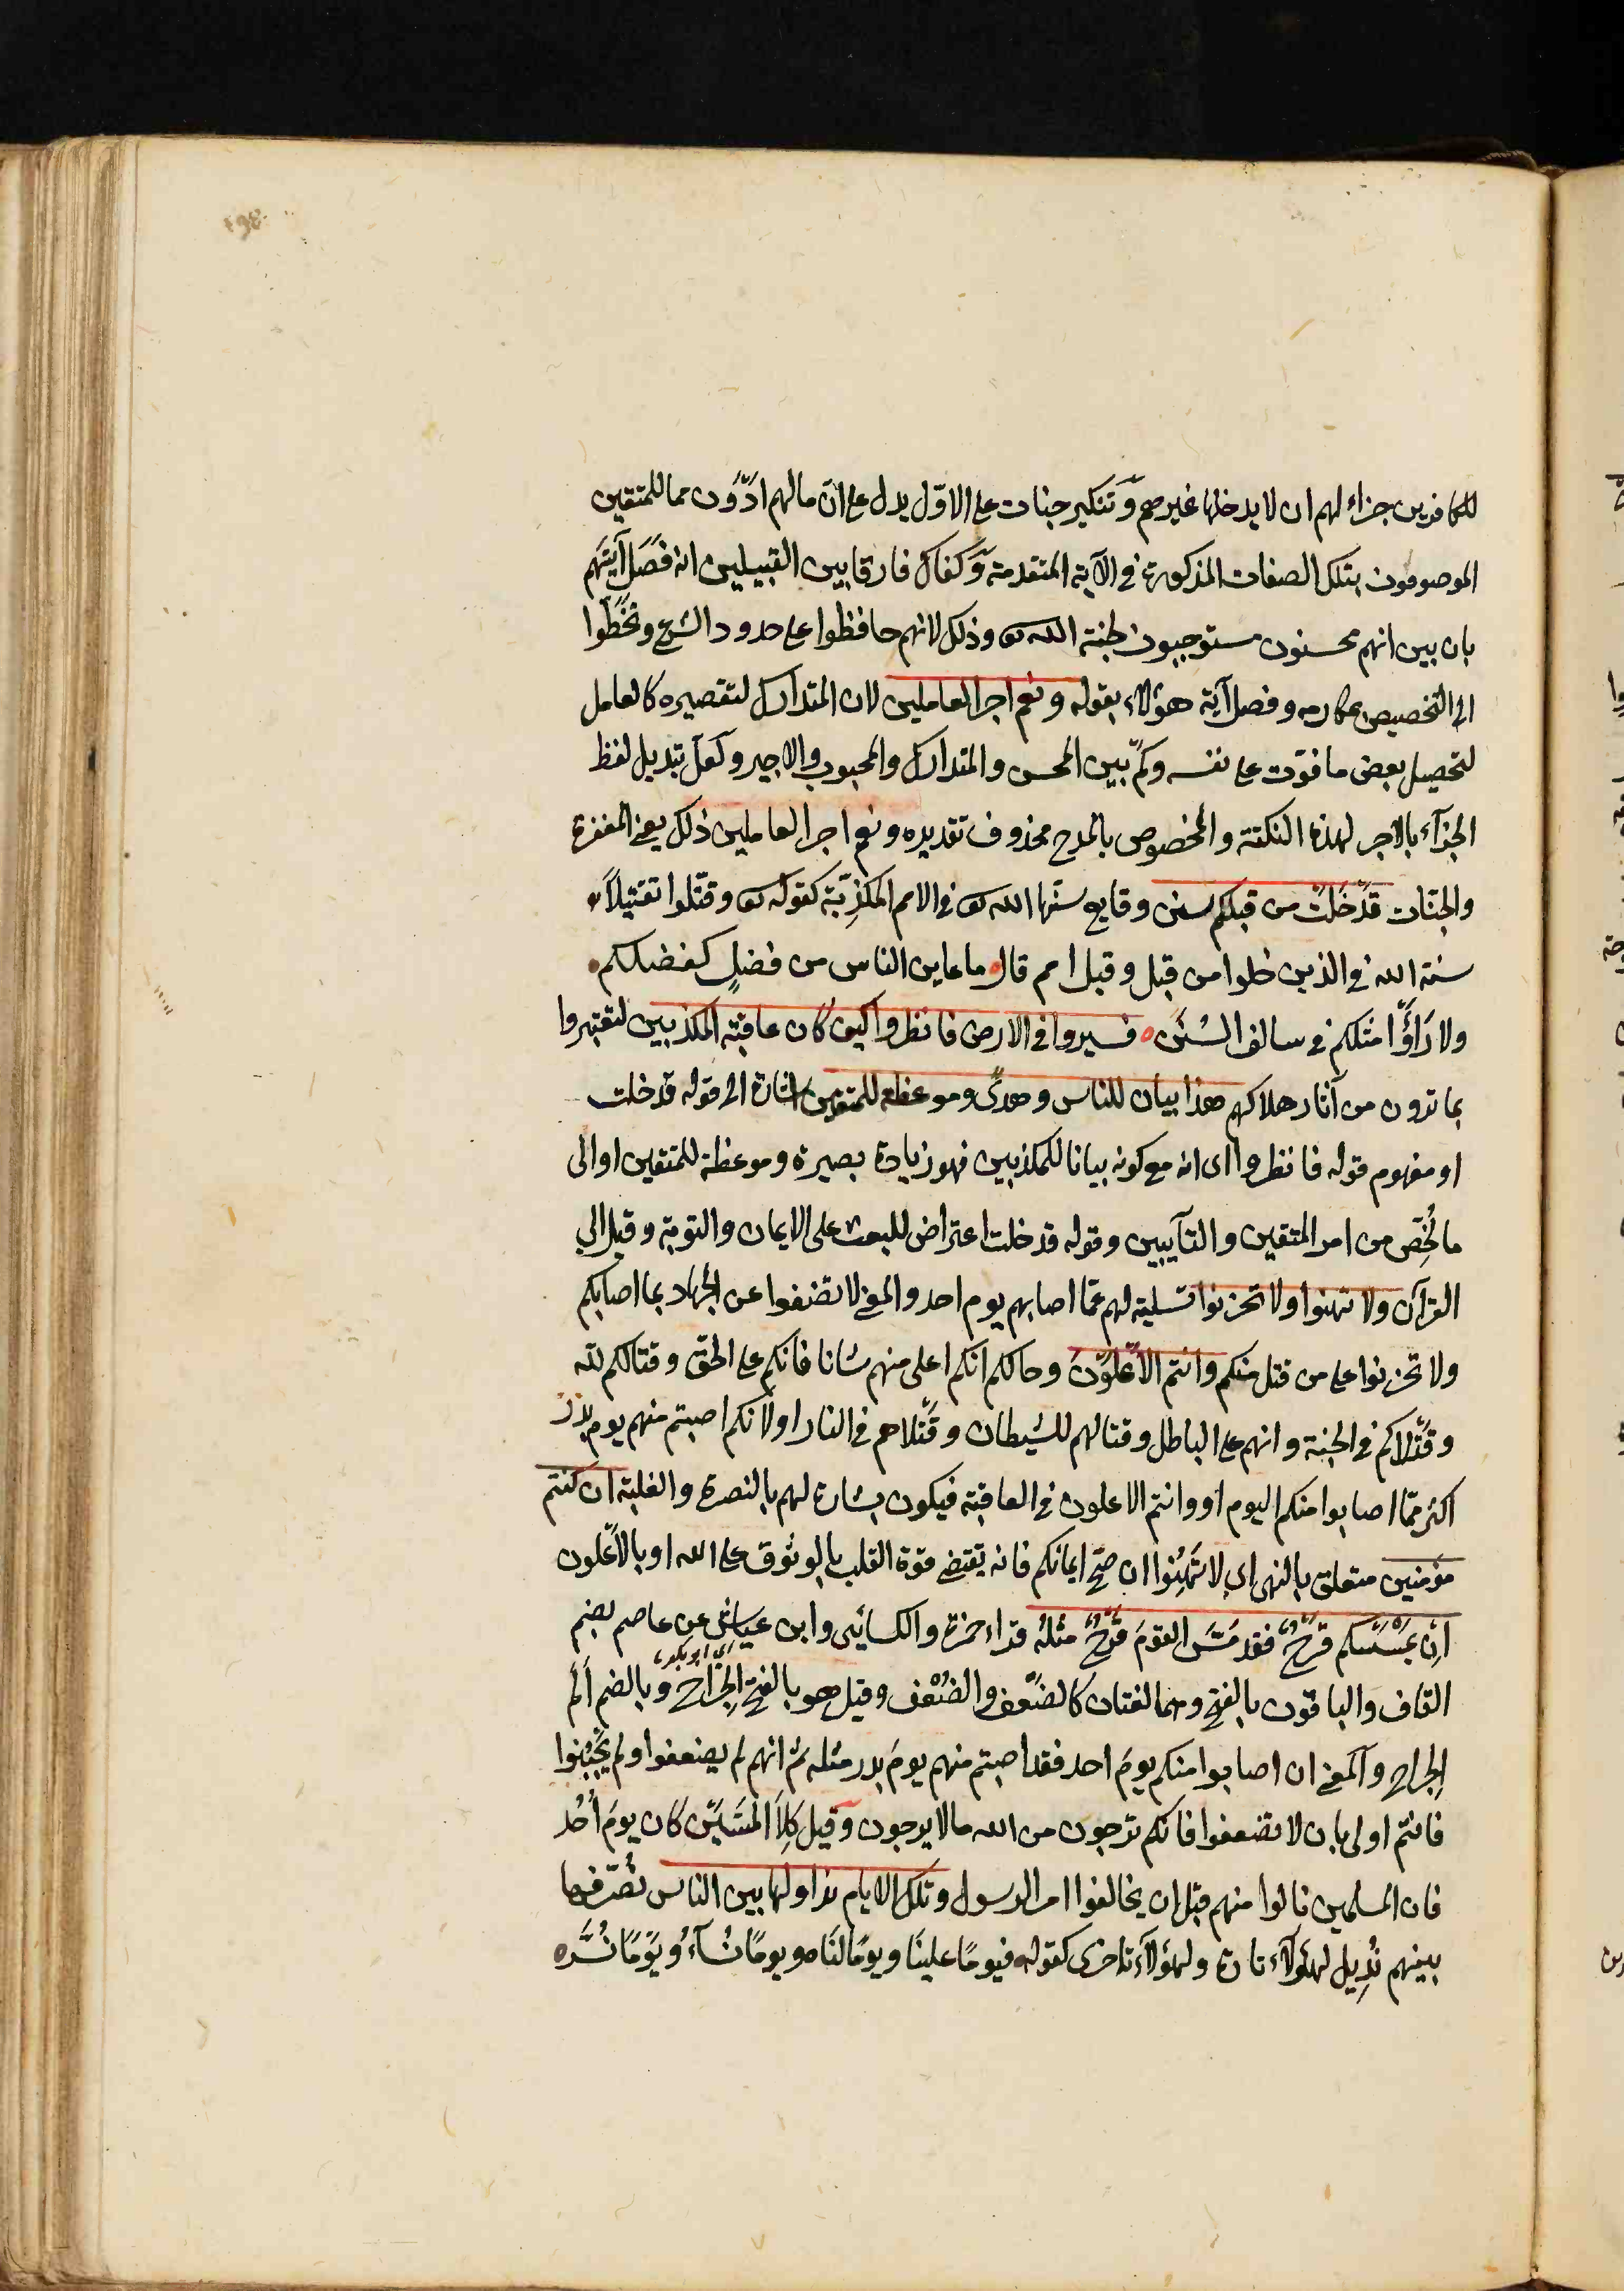 للكافرين جزاء لهم ان لا يدخلها غيرهم وتنكير جنات على الاوّل يدل على انّ ما لهم ادّون مما للمتقين
الموصوفون بتلك الصفات المذكورة في الآية المتقدمة وكفاك فارقا بين القبيلين انه فصل آيتهم
بان بين انهم محسنون مستوجبون لمحبة الله تعا وذلك لانهم حافظوا على حدود الشرع وتخطّوا
الى التخصيص بمكارمه وفصل آية هؤلاء بقوله ونعم اجر العاملين لان المتدارك لتقصيره كالعامل
لتحصيل بعض ما فوّت على نفسه وكم بين المحسن والمتدارك والمحبوب والاجير ولعل تبديل لفظ
الجزآء بالاجر لهذه النكتة والمخصوص بالمدح محذوف تقديره ونعم اجر العاملين ذلك يعني المغفرة
والجنات قد خلت من قبلكم سنن وقايع سنّها الله تعا في الامم المكذّبة كقوله تعا وقتّلوا تقتيلاً
سنة الله في الذين خلوا من قبل وقيل امم قال ما عاين الناس من فضلٍ كفضلكم
ولا رَاَوْا مثلكم في سالف السُنَن فسيروا في الارض فانظروا كيف كان عاقبة المكذبين لتعتبروا
بما ترون من آثار هلاكهم هذا بيان للناس وهدًى وموعظة للمتقين اشارة الى قوله قد خلت
او مفهوم قوله فانظروا اى انه مع كونه بيانا للمكذبين فهو زيادة بصيرة وموعظة للمتقين او الى
ما لُخّص من امر المتقين والتآيبين وقوله قد خلت اعتراض للبعث على الايمان والتوبة وقيل الى
القرآن ولا تهنوا ولا تحزنوا تسلية لهم عمّا اصابهم يوم احد والمعنى لا تضعفوا عن الجهاد بما اصابكم
ولا تحزنوا على من قتل منكم وانتم الاعلون وحالكم انكم اعلى منهم شانا فانكم على الحق وقتالكم لله
وقتلاكم في الجنة وانهم على الباطل وقتالهم للشيطان وقتلاهم في النار او لانكم اصبتم منهم يوم بدر
اكثر ممّا اصابوا منكم اليوم او وانتم الاعلون في العاقبة فيكون بشارة لهم بالنصرة والغلبة ان كنتم
مؤمنين متعلق بالنهى اى لا تَهِنُوا ان صح ايمانكم فانه يقتضى قوة القلب بالوثوق على الله او بالاعلون
اِن يَمْسَسكم قرحٌ فقد مَسّ القومَ قرحٌ مثلهُ قراء حمزة والكسائى وابن عياش عن عاصم بضم
اى ابو بكر
القاف والباقون بالفتح وهما لغتان كالضَعف والضُعف وقيل هو بالفتح الجِراح وبالضم اَلَم
الجراح والمعنى ان اصابوا منكم يومَ احد فقد اصبتم منهم يومَ بدر مثله ثم انهم لم يضعفوا ولم يجبُنوا
فانتم اولى بان لا تضعفوا فانكم ترجون من الله ما لا يرجون وقيل كِلا المَسّين كان يومَ اُحُد
فان المسلمين نالوا منهم قبل ان يخالفوا امر الرسول وتلك الايام نداولها بين الناس نُصَرّفها
بينهم نُدِيل لهؤلاء تارة ولهؤلاء اخرى كقوله فيومًا علينَا ويومًا لنَا ويومًا نُسَآءُ ويَوْمًا نُسَرّ